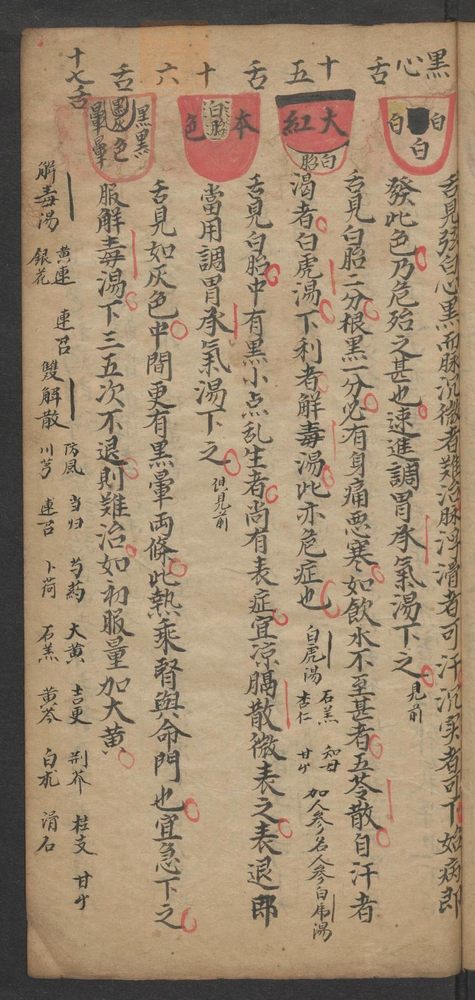 黑心舌
白 白 白
舌見弦白心黑而脉沉微者難治脉浮滑者可汗沉实者可下始病郎
發此色乃危殆之甚也速進調胃承氣湯下之 見前
十五舌
大紅
白胎
舌見白胎二分根黑一分必有身痛悪寒如飲水不至甚者五苓散自汗者
渴者白虎湯下利者解毒湯此亦危症也 白虎湯 石羔 知母 杏仁 甘艸 加人參名人參白虎湯
十六舌
本色
白胎
舌見白胎中有黑小点乱生者尚有表症宜凉膈散微表之表退郎
當用調胃承氣湯下之 俱見前
十七舌
黑暈 黑灰色 黑暈
舌見如灰色中間更有黑暈両條此熱乘腎與命門也宜急下之
服解毒湯下三五次不退則難治如初服量加大黄
解毒湯 黄連 銀花 連召
雙解散 防風 当归 芍薬 大黄 吉更 荆芥 桂支 甘艸
川芎 連召 卜荷 石羔 黄芩 白朮 滑石